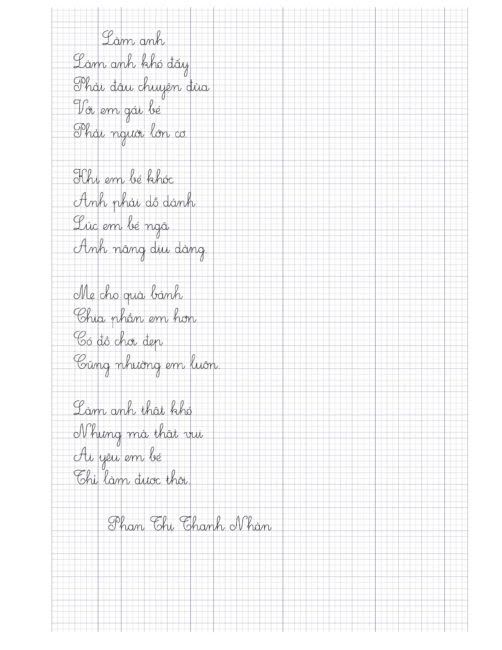 Làm anh
Làm anh khó đấy
Phải đâu chuyện đùa
Với em gái bé
Phải người lớn cơ.
Khi em bé khóc
Anh phải dỗ dành
Lúc em bé ngã
Anh nâng dịu dàng.
Mẹ cho quà bánh
Chia phần em hơn
Có đồ chơi đẹp
Cũng nhường em luôn.
Làm anh thật khó
Nhưng mà thật vui
Ai yêu em bé
Thì làm được thôi.
Phan Thị Thanh Nhàn